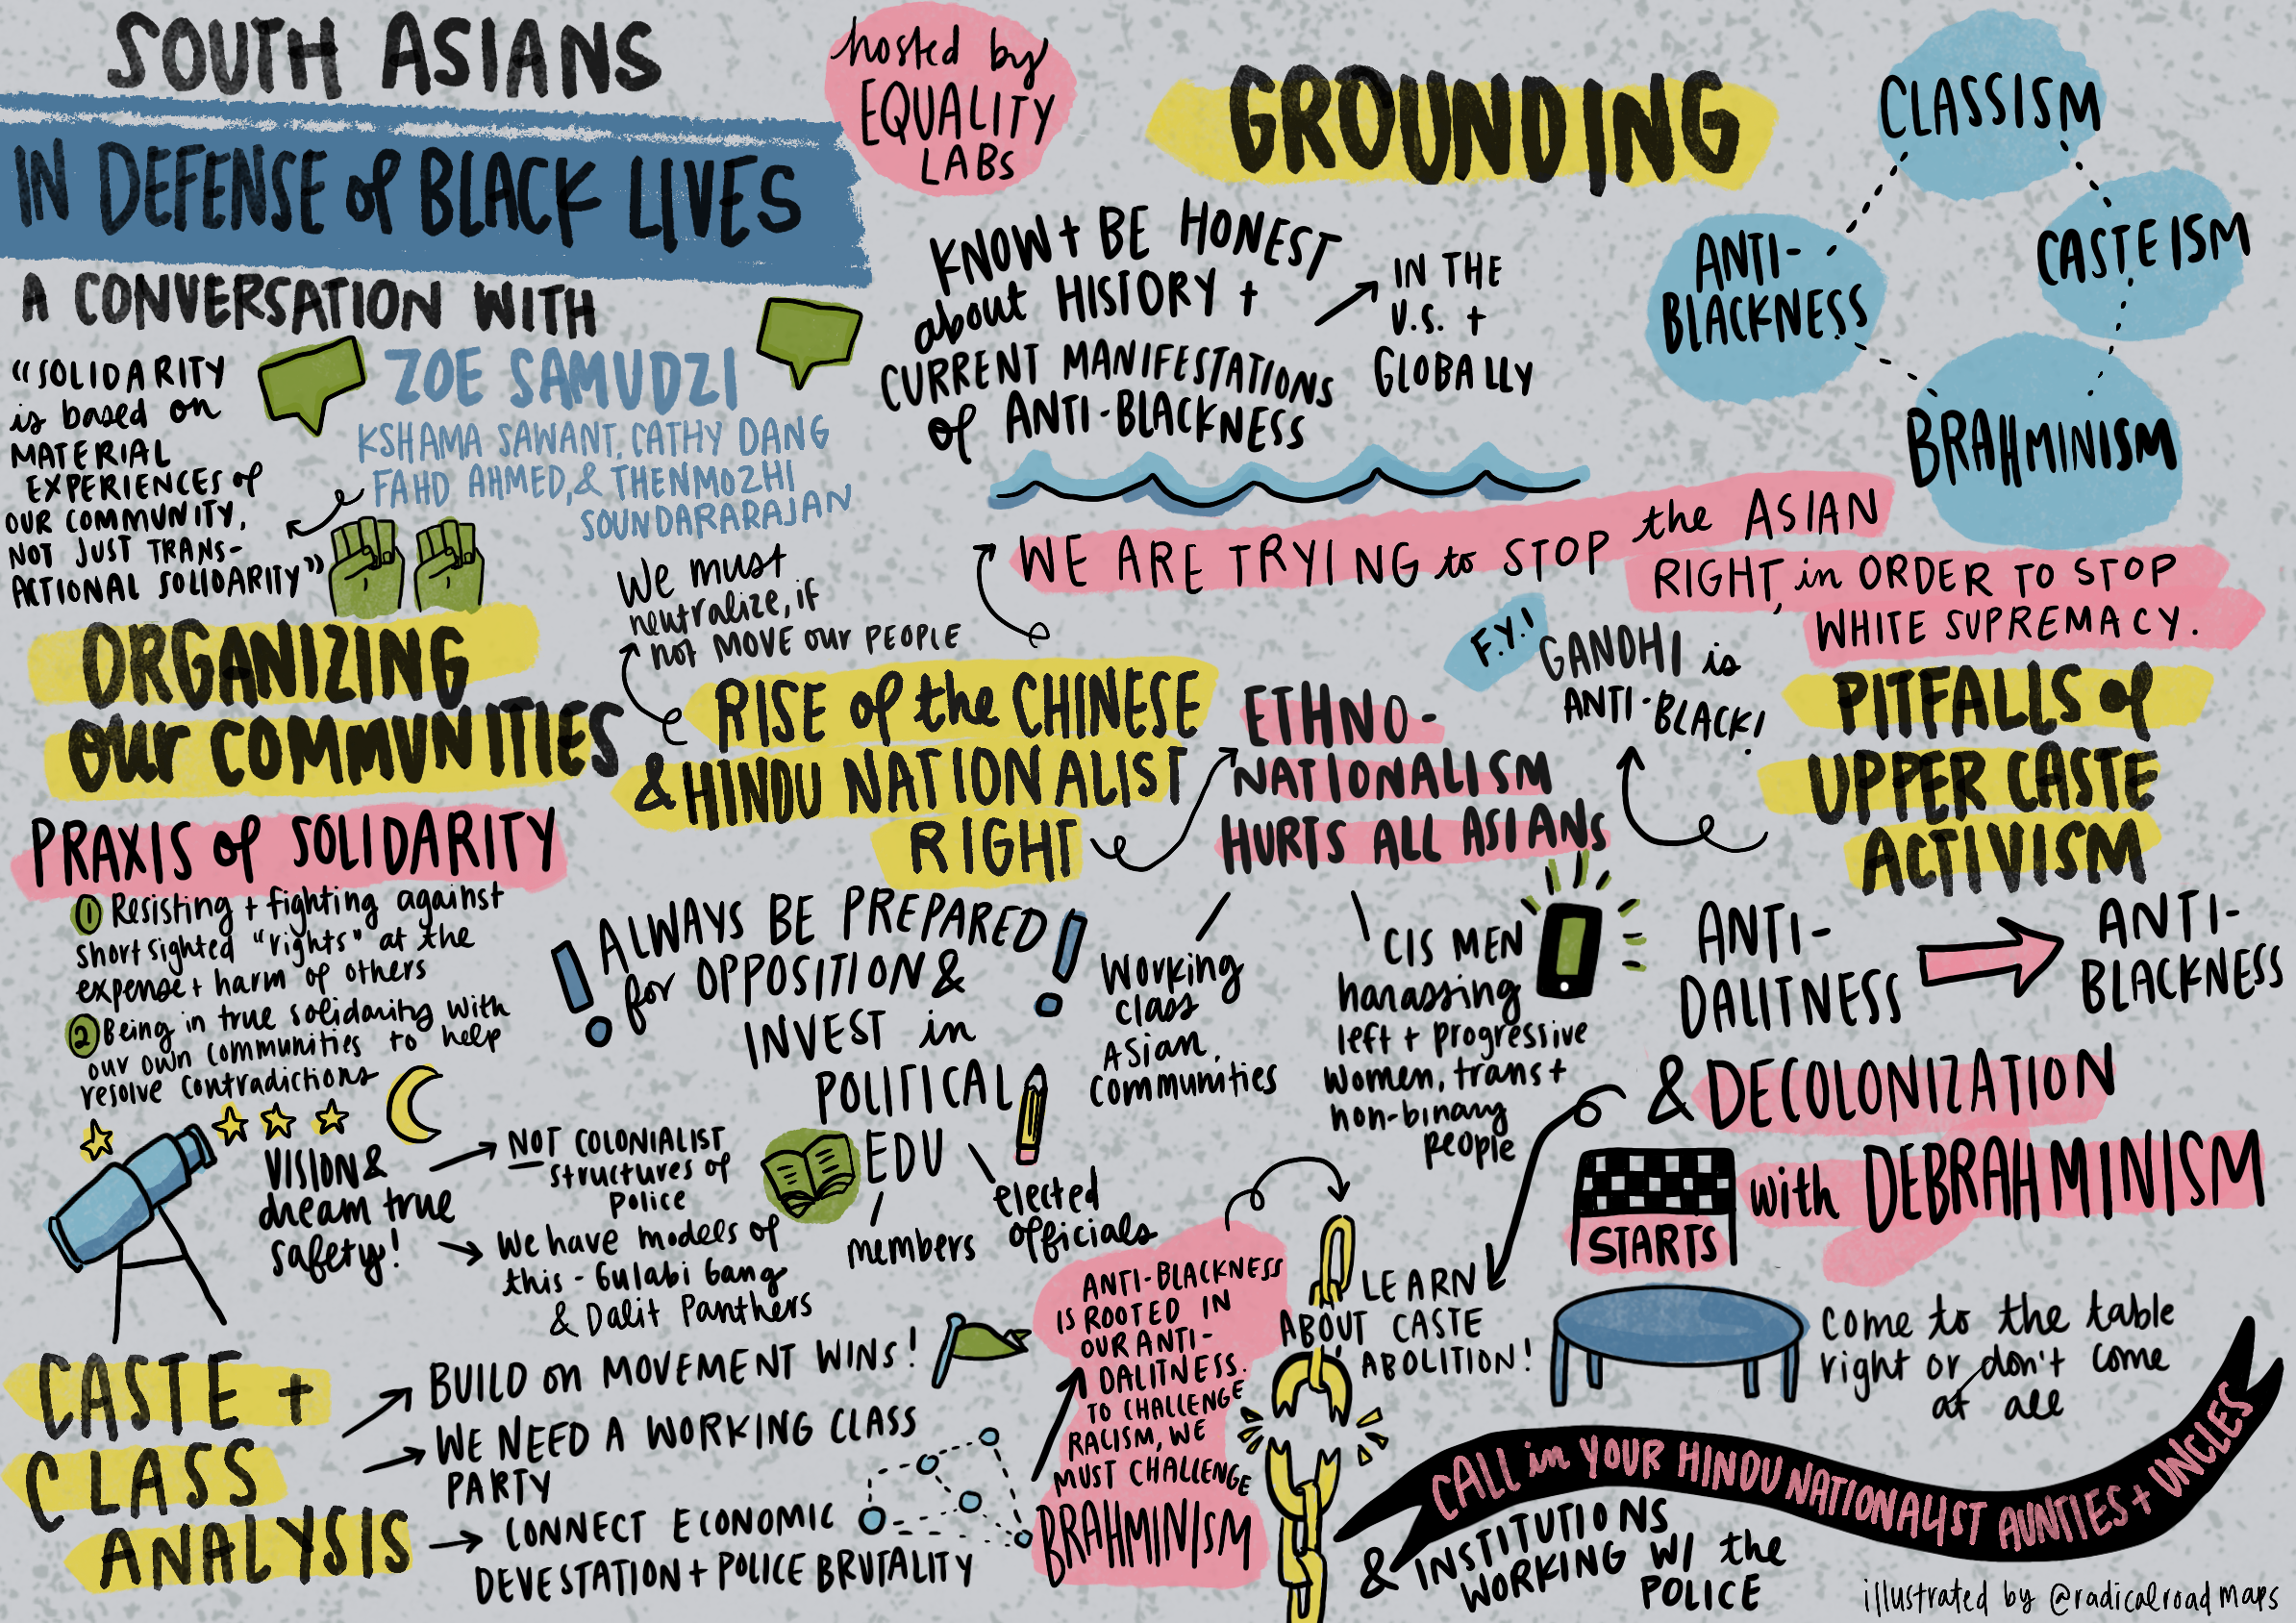 SOUTH ASIANS
IN DEFENSE of BLACK LIVES
A CONVERSATION WITH
ZOE SAMUDZI
KSHAMA SAWANT, CATHY DANG
FAHD AHMED, & THENMOZHI
SOUNDARARAJAN
hosted by
EQUALITY
LABS
"SOLIDARITY
is based on
MATERIAL
EXPERIENCES of
OUR COMMUNITY,
NOT JUST TRANS-
ACTIONAL SOLIDARITY"
GROUNDING
KNOW + BE HONEST
about HISTORY +
CURRENT MANIFESTATIONS
of ANTI-BLACKNESS
IN THE
U.S. +
GLOBALLY
CLASSISM
CASTEISM
ANTI-
BLACKNESS
BRAHMINISM
WE ARE TRYING to STOP the ASIAN
RIGHT, in ORDER TO STOP
WHITE SUPREMACY.
We must
neutralize, if
not MOVE our PEOPLE
RISE of the CHINESE
& HINDU NATIONALIST
RIGHT
ETHNO-
NATIONALISM
HURTS ALL ASIANS
Working
class
ASian
Communities
CIS MEN
harassing
left + progressive
women, trans +
non-binary
people
F.Y.I
GANDHI is
ANTI-BLACK!
PITFALLS of
UPPER CASTE
ACTIVISM
ANTI-
DALITNESS
ANTI-
BLACKNESS
& DECOLONIZATION
STARTS
with DEBRAHMINISM
LEARN
ABOUT CASTE
ABOLITION!
come to the table
right or don't come
at all
ORGANIZING
our COMMUNITIES
PRAXIS of SOLIDARITY
1 Resisting + fighting against
short sighted "rights" at the
expense + harm of others
2 Being in true solidarity with
our own communities to help
resolve contradictions
ALWAYS BE PREPARED
for OPPOSITION &
INVEST in
POLITICAL
EDU
members
elected
officials
VISION &
dream true
safety!
NOT COLONIALIST
structures of
police
We have models of
this - Gulabi Gang
& Dalit Panthers
CASTE +
CLASS
ANALYSIS
BUILD on MOVEMENT WINS!
WE NEED A WORKING CLASS
PARTY
CONNECT ECONOMIC
DEVESTATION + POLICE BRUTALITY
ANTI-BLACKNESS
IS ROOTED IN
OUR ANTI-
DALITNESS.
TO CHALLENGE
RACISM, WE
MUST CHALLENGE
BRAHMINISM
CALL in YOUR HINDU NATIONALIST AUNTIES + UNCLES
& INSTITUTIONS
WORKING W/ the
POLICE
illustrated by @radicalroadmaps